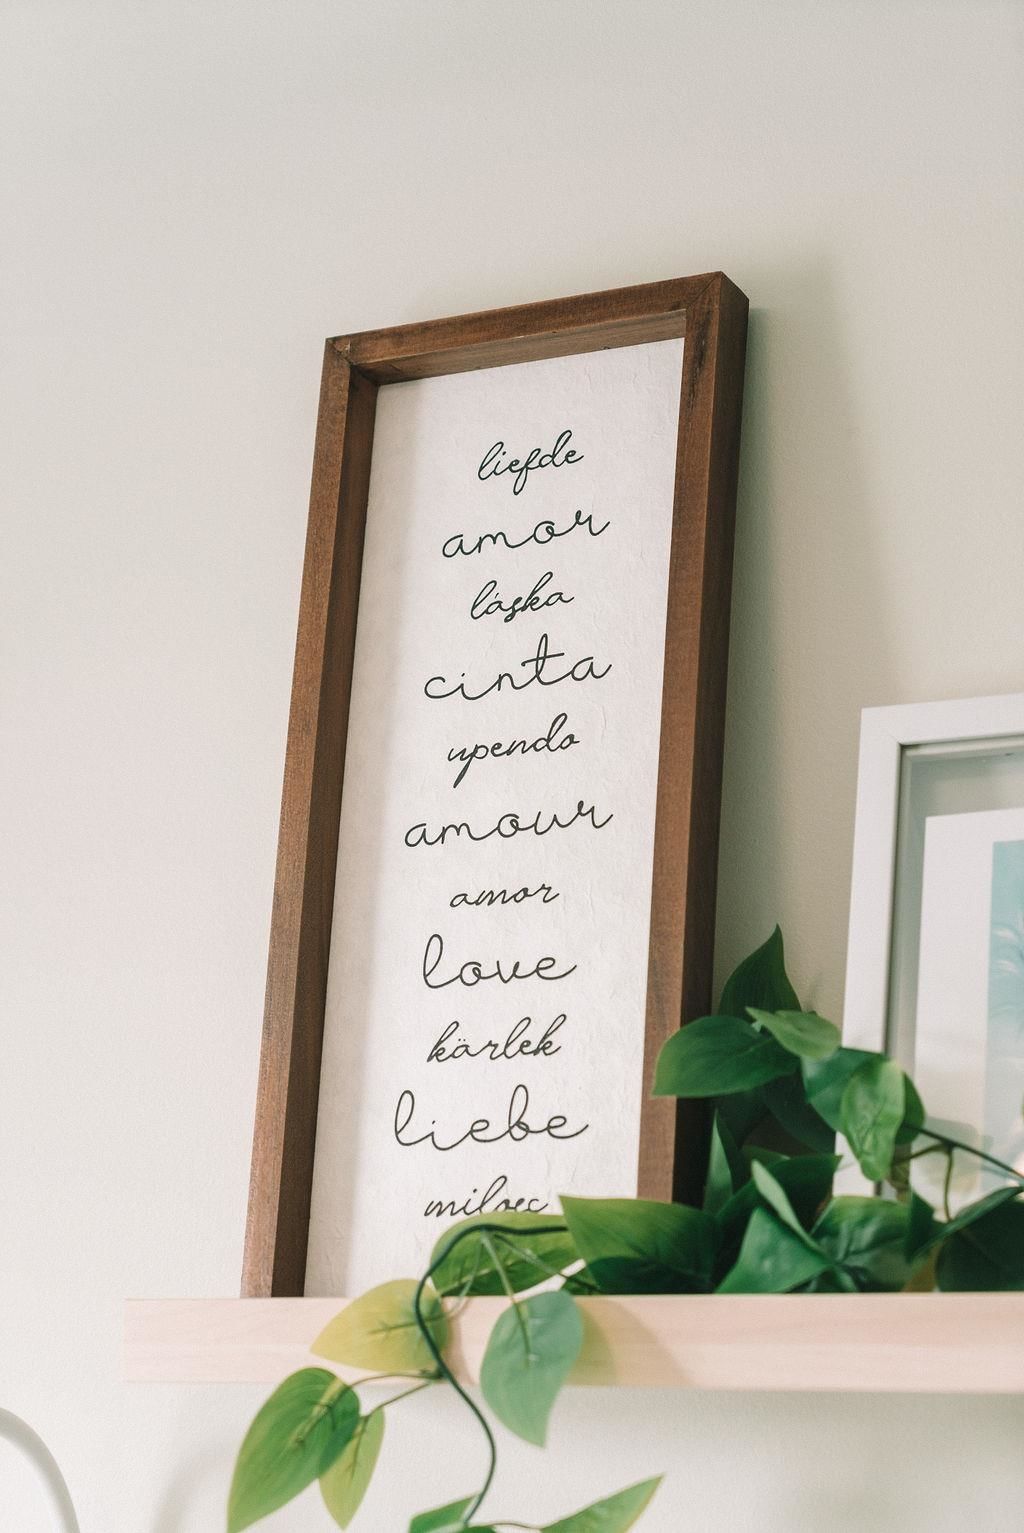 liefde
amor
láska
cinta
upendo
amour
amor
love
kärlek
liebe